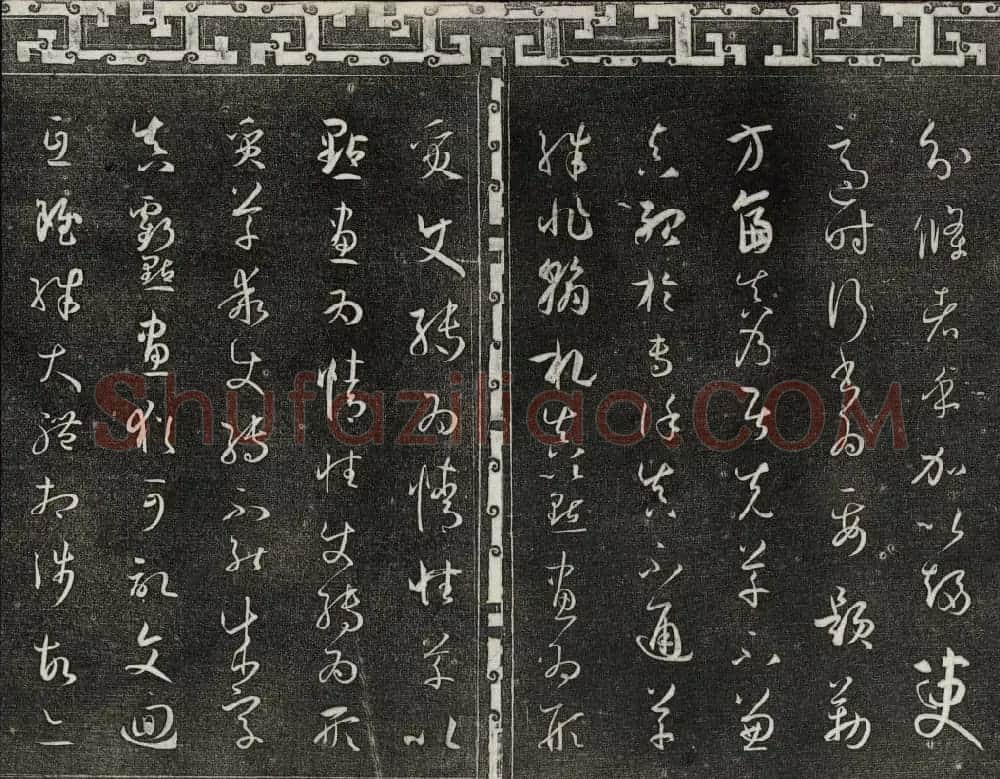 分條者乎加以趨變
適時行書為要題勒
方畐真乃居先草不兼
真殆於專謹真不通草
殊非翰札真以點畫為形
質使轉為情性草以
點畫為情性使轉為形
質草乖使轉不能成字
真虧點畫猶可記文迴
互雖殊大體相涉故亦
Shufaziliao.COM